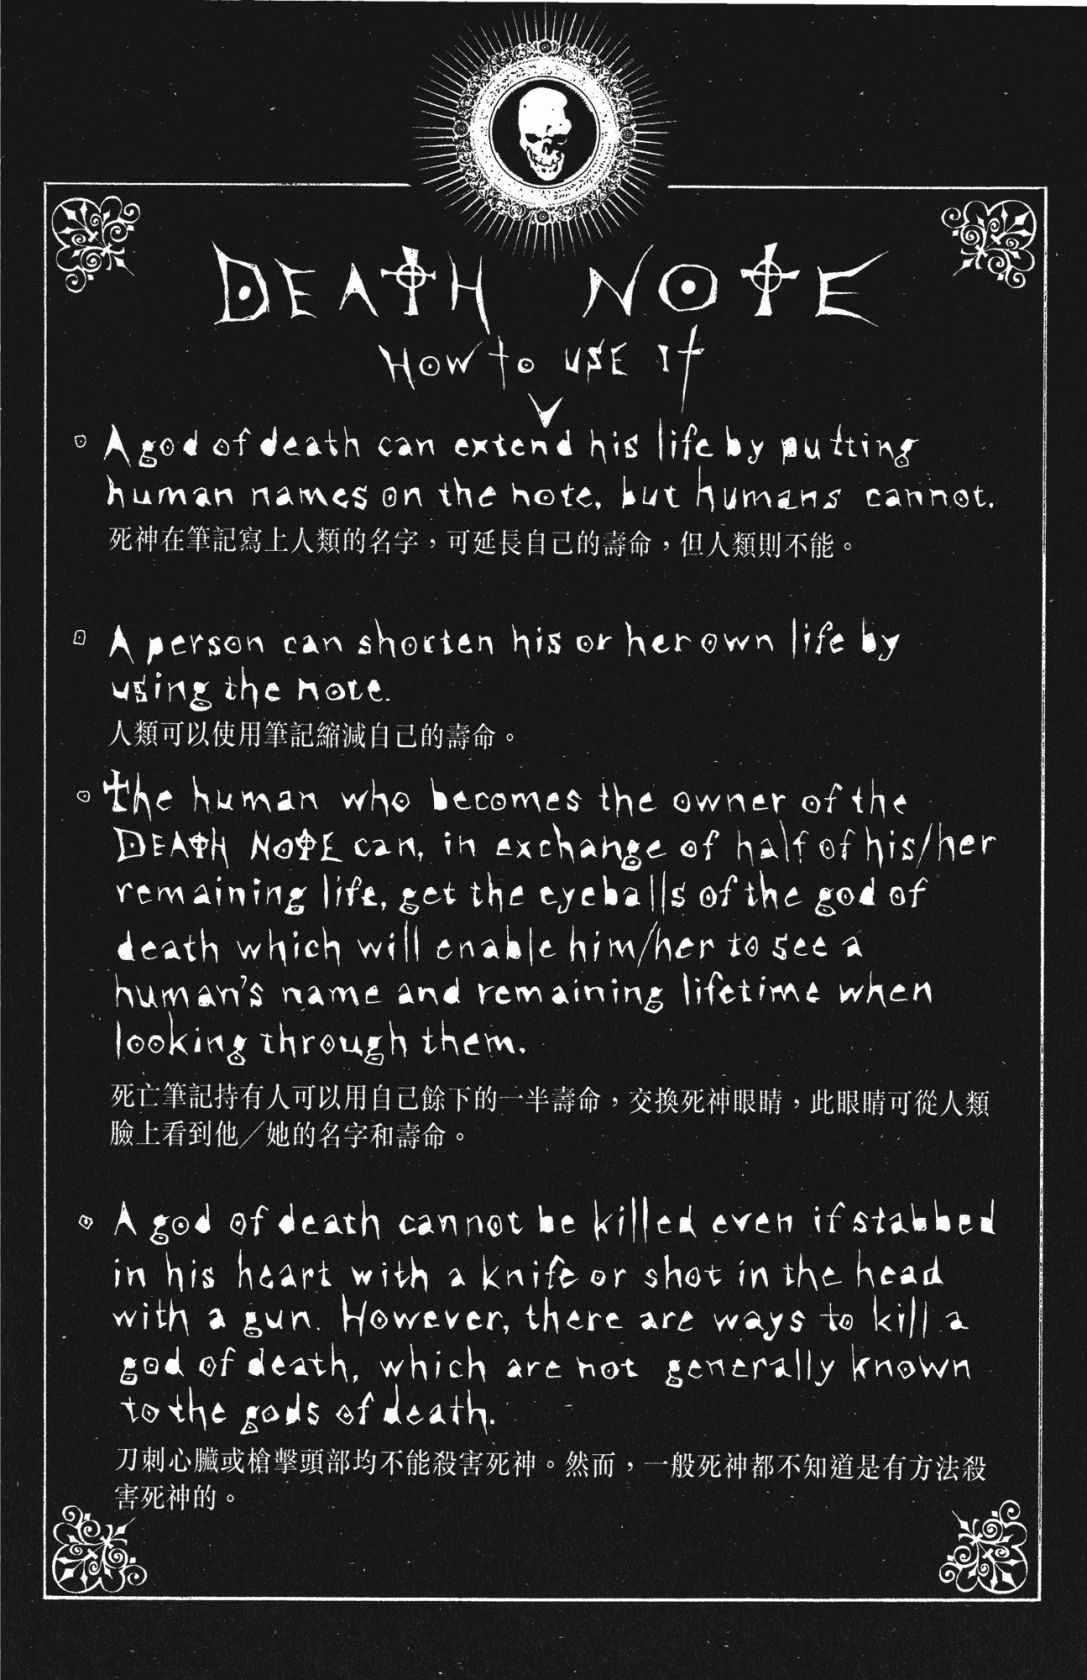 DEATH NOTE
How to use it
A god of death can extend his life by putting
human names on the note, but humans cannot.
死神在筆記寫上人類的名字，可延長自己的壽命，但人類則不能。
A person can shorten his or her own life by
using the note.
人類可以使用筆記縮減自己的壽命。
The human who becomes the owner of the
DEATH NOTE can, in exchange of half of his/her
remaining life, get the eyeballs of the god of
death which will enable him/her to see a
human's name and remaining lifetime when
looking through them.
死亡筆記持有人可以用自己餘下的一半壽命，交換死神眼睛，此眼睛可從人類
臉上看到他／她的名字和壽命。
A god of death cannot be killed even if stabbed
in his heart with a knife or shot in the head
with a gun. However, there are ways to kill a
god of death, which are not generally known
to the gods of death.
刀刺心臟或槍擊頭部均不能殺害死神。然而，一般死神都不知道是有方法殺
害死神的。